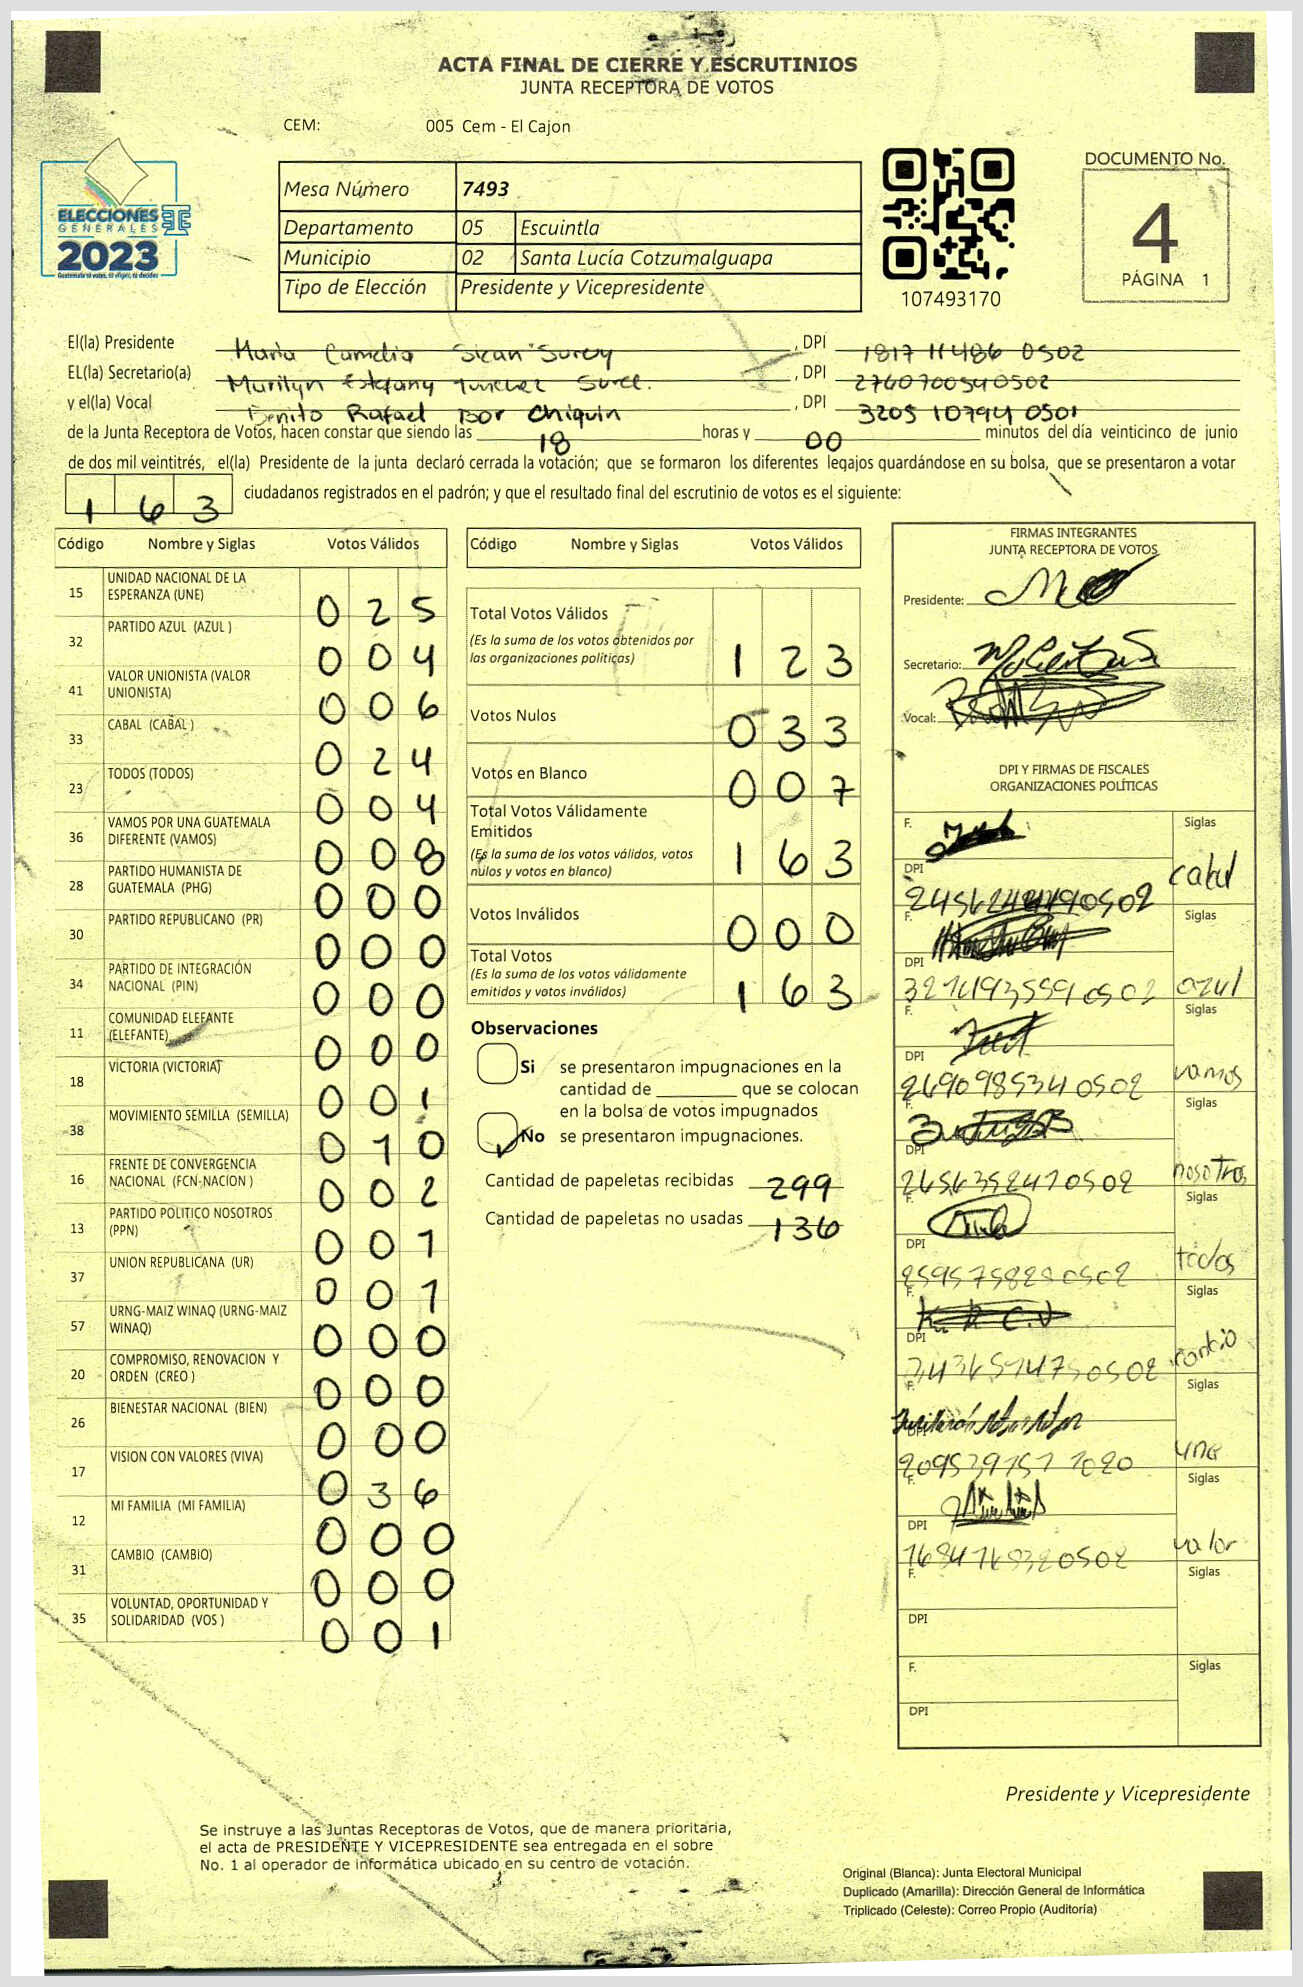 ACTA FINAL DE CIERRE Y ESCRUTINIOS
JUNTA RECEPTORA DE VOTOS
CEM: 005 Cem - El Cajon
ELECCIONES
GENERALES
2023
Mesa Número 7493
Departamento 05 Escuintla
Municipio 02 Santa Lucía Cotzumalguapa
Tipo de Elección Presidente y Vicepresidente
107493170
DOCUMENTO No.
4
PÁGINA 1
El(la) Presidente Maria , DPI 1817 11486 0502
EL(la) Secretario(a) Marilyn Estefany , DPI 2760700540502
y el(la) Vocal Benito Rafael Bor Chiquin , DPI 3205 10794 0501
de la Junta Receptora de Votos, hacen constar que siendo las 18 horas y 00 minutos del día veinticinco de junio
de dos mil veintitrés, el(la) Presidente de la junta declaró cerrada la votación; que se formaron los diferentes legajos quardándose en su bolsa, que se presentaron a votar
163 ciudadanos registrados en el padrón; y que el resultado final del escrutinio de votos es el siguiente:
Código Nombre y Siglas Votos Válidos
15 UNIDAD NACIONAL DE LA ESPERANZA (UNE) 025
32 PARTIDO AZUL (AZUL ) 004
41 VALOR UNIONISTA (VALOR UNIONISTA) 006
33 CABAL (CABAL ) 024
23 TODOS (TODOS) 004
36 VAMOS POR UNA GUATEMALA DIFERENTE (VAMOS) 008
28 PARTIDO HUMANISTA DE GUATEMALA (PHG) 000
30 PARTIDO REPUBLICANO (PR) 000
34 PARTIDO DE INTEGRACIÓN NACIONAL (PIN) 000
11 COMUNIDAD ELEFANTE (ELEFANTE) 000
18 VICTORIA (VICTORIA) 001
38 MOVIMIENTO SEMILLA (SEMILLA) 010
16 FRENTE DE CONVERGENCIA NACIONAL (FCN-NACION ) 002
13 PARTIDO POLITICO NOSOTROS (PPN) 001
37 UNION REPUBLICANA (UR) 001
57 URNG-MAIZ WINAQ (URNG-MAIZ WINAQ) 000
20 COMPROMISO, RENOVACION Y ORDEN (CREO ) 000
26 BIENESTAR NACIONAL (BIEN) 000
17 VISION CON VALORES (VIVA) 036
12 MI FAMILIA (MI FAMILIA) 000
31 CAMBIO (CAMBIO) 000
35 VOLUNTAD, OPORTUNIDAD Y SOLIDARIDAD (VOS ) 001
Código Nombre y Siglas Votos Válidos
Total Votos Válidos
(Es la suma de los votos obtenidos por
las organizaciones políticas) 123
Votos Nulos 033
Votos en Blanco 007
Total Votos Válidamente
Emitidos
(Es la suma de los votos válidos, votos
nulos y votos en blanco) 163
Votos Inválidos 000
Total Votos
(Es la suma de los votos válidamente
emitidos y votos inválidos) 163
Observaciones
Si se presentaron impugnaciones en la
cantidad de que se colocan
en la bolsa de votos impugnados
No se presentaron impugnaciones.
Cantidad de papeletas recibidas 299
Cantidad de papeletas no usadas 136
FIRMAS INTEGRANTES
JUNTA RECEPTORA DE VOTOS
Presidente:
Secretario:
Vocal:
DPI Y FIRMAS DE FISCALES
ORGANIZACIONES POLÍTICAS
F. Siglas
DPI cabal
F. Siglas
DPI azul
F. Siglas
DPI 2690985340502 vamos
F. Siglas
DPI 2656392470502 nosotros
F. Siglas
DPI todos
F. Siglas
DPI
F. Siglas
DPI une
F. Siglas
DPI valor
F. Siglas
DPI
F. Siglas
DPI
Presidente y Vicepresidente
Se instruye a las Juntas Receptoras de Votos, que de manera prioritaria,
el acta de PRESIDENTE Y VICEPRESIDENTE sea entregada en el sobre
No. 1 al operador de informática ubicado en su centro de votación.
Original (Blanca): Junta Electoral Municipal
Duplicado (Amarilla): Dirección General de Informática
Triplicado (Celeste): Correo Propio (Auditoría)